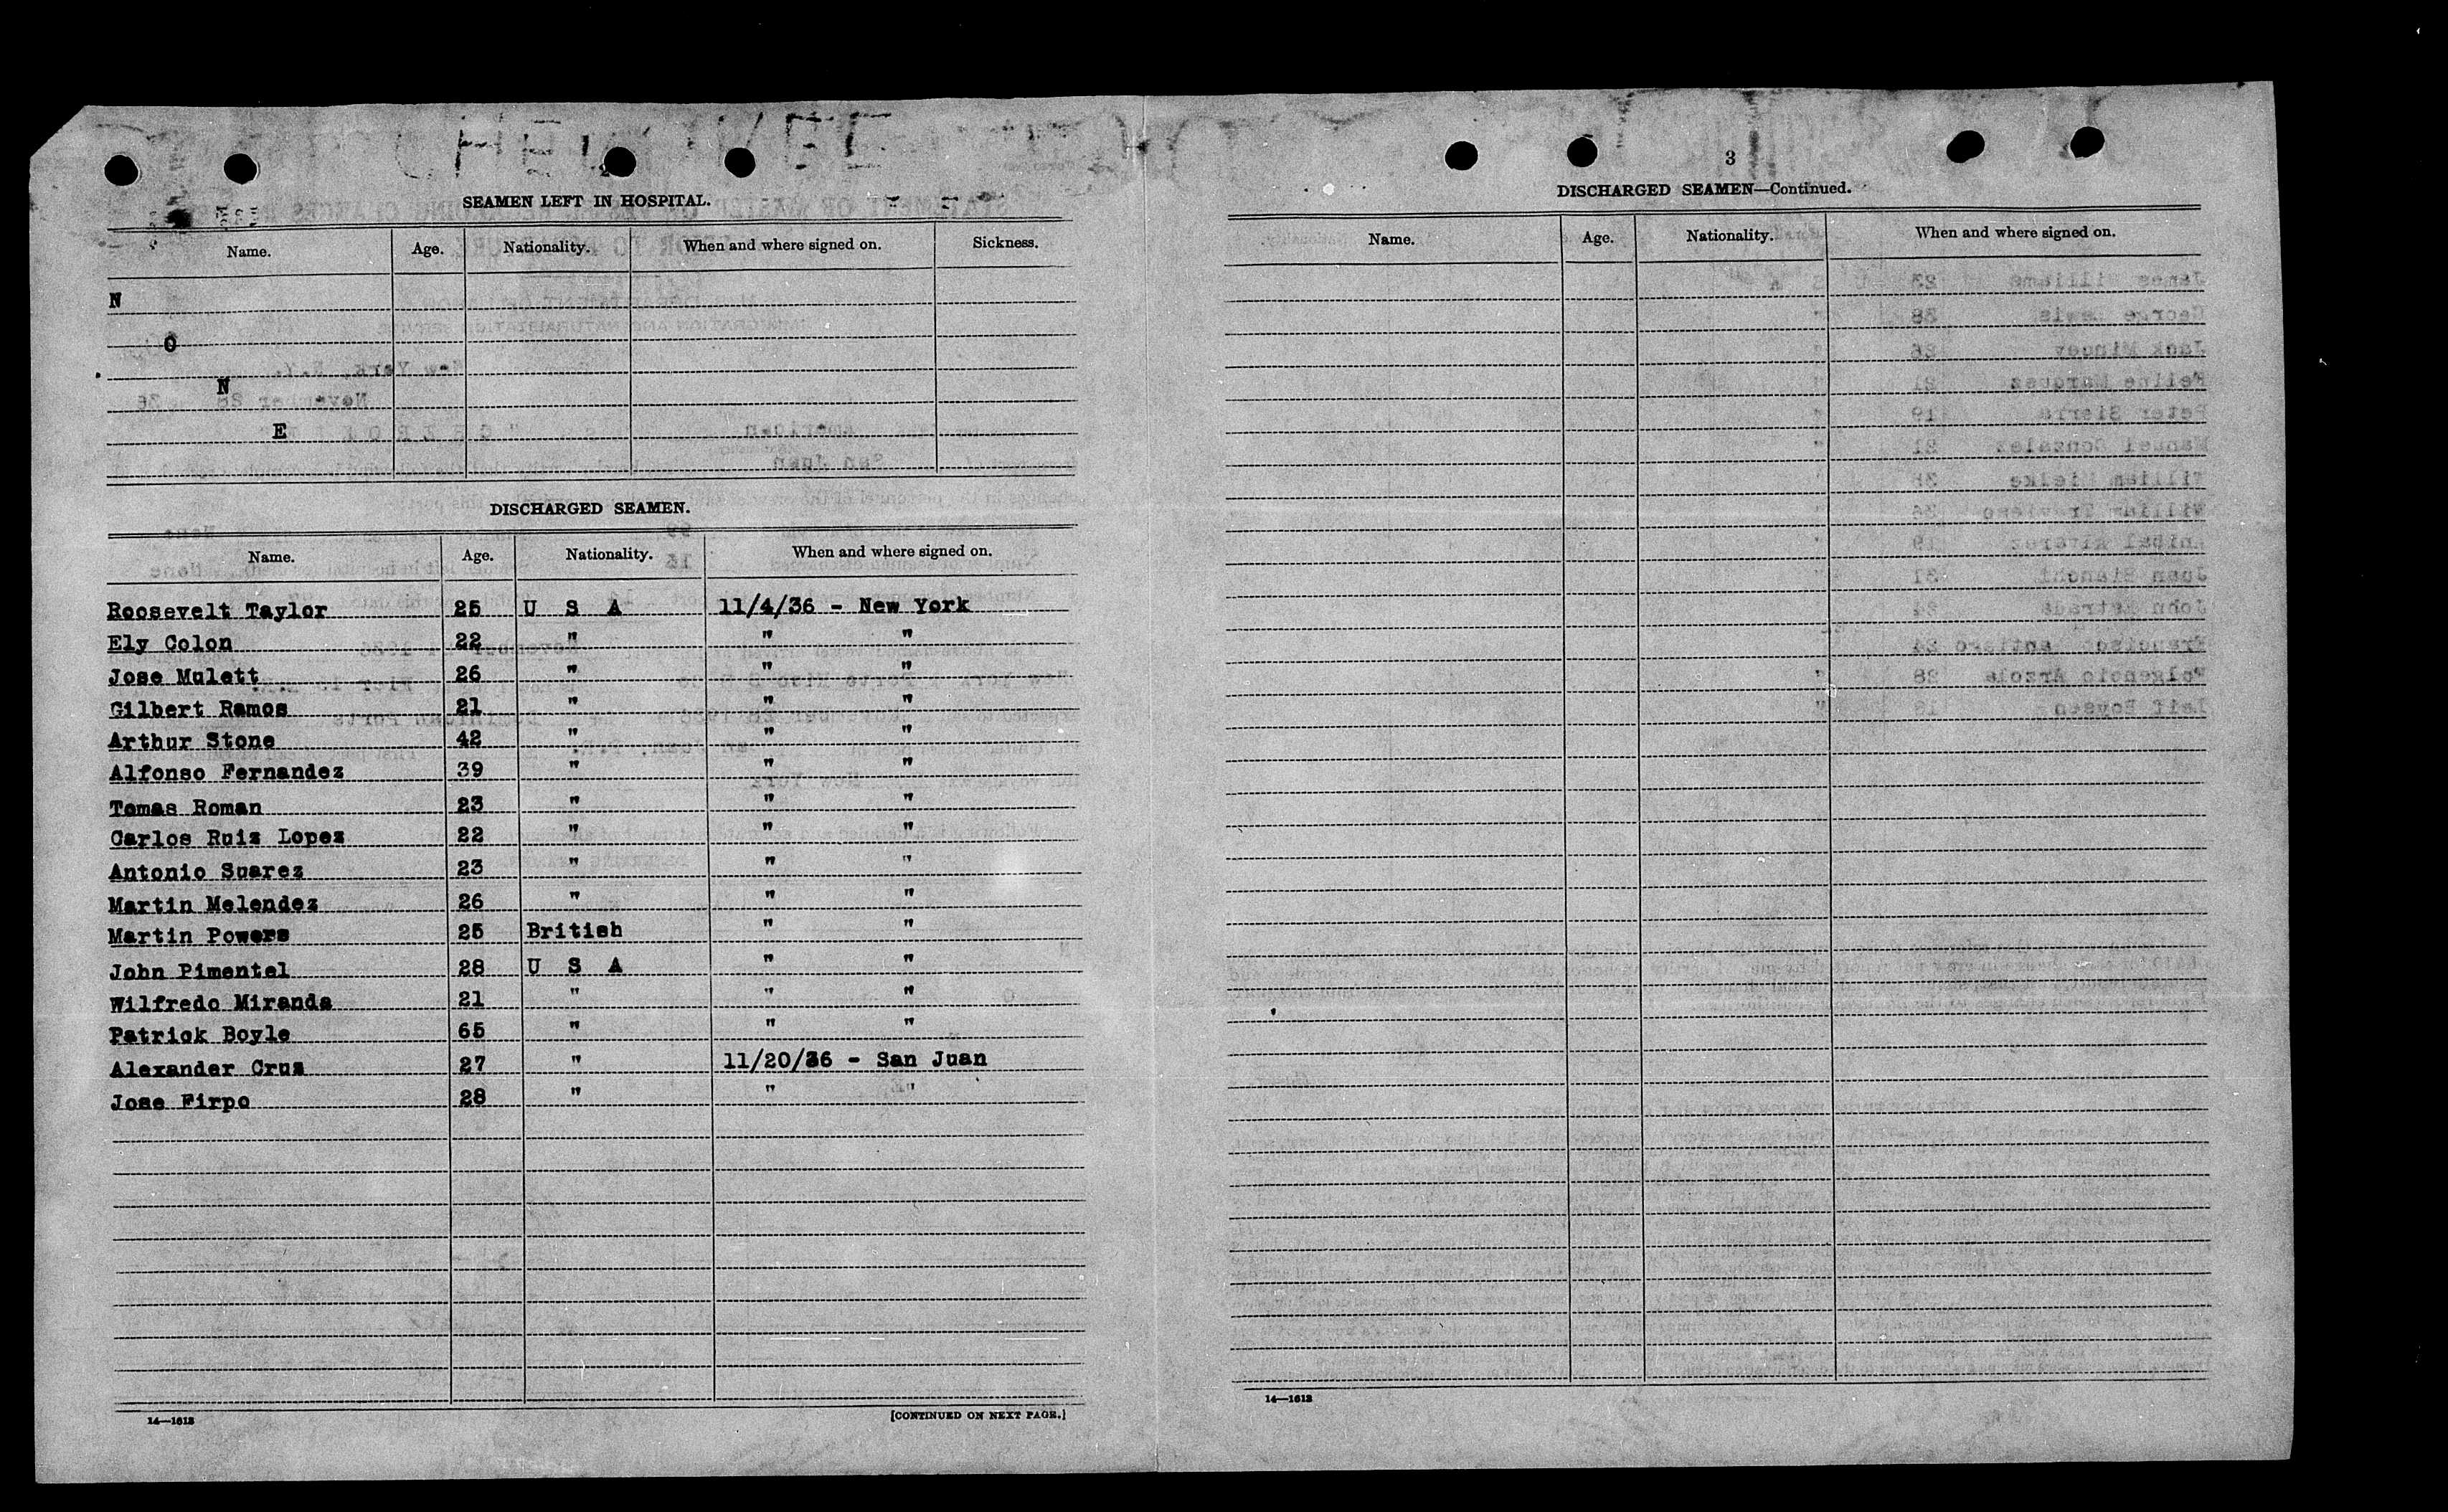 SEAMEN LEFT IN HOSPITAL.
Name. Age. Nationality. When and where signed on. Sickness.
N
O
N
E
DISCHARGED SEAMEN.
Name. Age. Nationality. When and where signed on.
Roosevelt Taylor 25 U S A 11/4/36 - New York
Ely Colon 22 " " "
Jose Mulett 26 " " "
Gilbert Ramos 21 " " "
Arthur Stone 42 " " "
Alfonso Fernandez 39 " " "
Tomas Roman 23 " " "
Carlos Ruiz Lopez 22 " " "
Antonio Suarez 23 " " "
Martin Melendez 26 " " "
Martin Powers 25 British " "
John Pimentel 28 U S A " "
Wilfredo Miranda 21 " " "
Patrick Boyle 65 " " "
Alexander Cruz 27 " 11/20/36 - San Juan
Jose Firpo 28 " " "
14—1613 [CONTINUED ON NEXT PAGE.]
3
DISCHARGED SEAMEN—Continued.
Name. Age. Nationality. When and where signed on.
14—1613